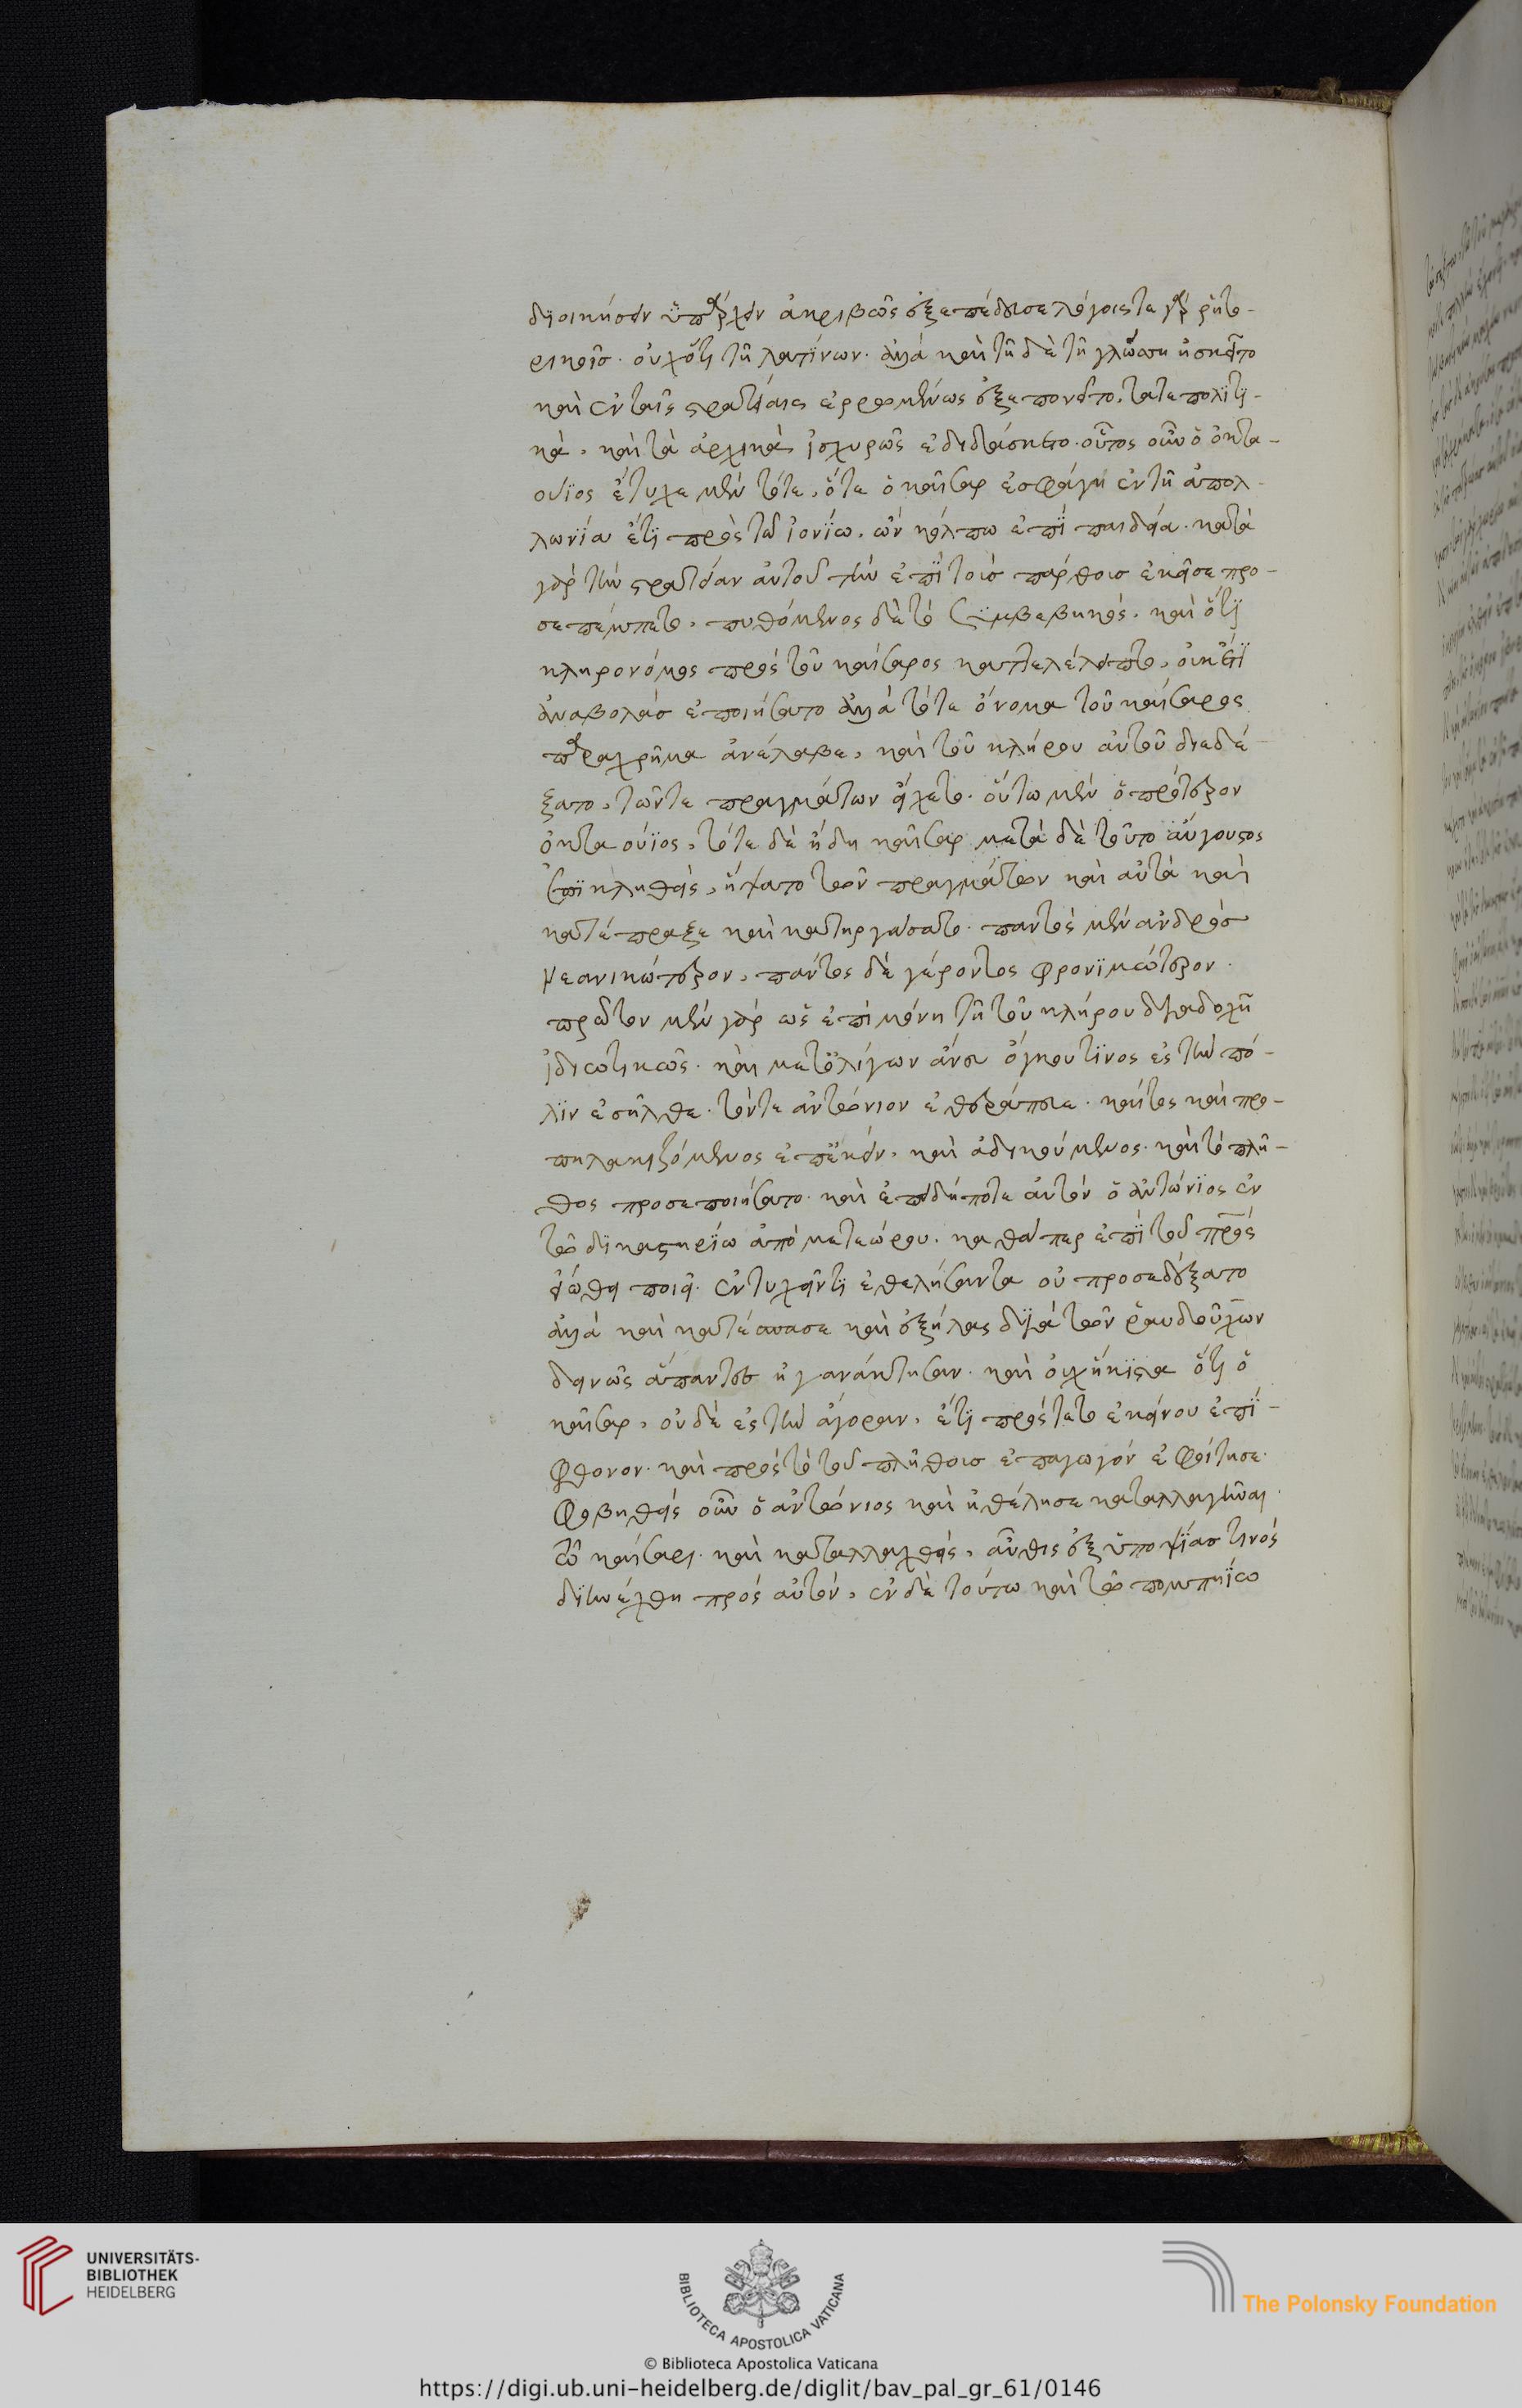 διοικήσειν ὑπάρχειν ἀκριβῶς ἐξεπαίδευσε λόγοιςτε γὰρ ῥητο-
ρικοῖς. οὐχὅτι τῆ λατίνων. ἀλλὰ καὶ τῆ δὲ τῆ γλώσση ἠσκεῖτο
καὶ ἐν ταῖς στρατείαις ἐρρωμένως ἐξεπονεῖτο, τάτε πολιτι-
κὰ, καὶ τὰ ἀρχικὰ ἰσχυρῶς ἐδιδάσκετο. οὗτος οὖν ὁ ὀκτα-
ούϊος ἔτυχε μὲν τότε, ὅτε ὁ καῖσαρ ἐσφάγη ἐν τῆ ἀπολ-
λωνία ἔτι πρὸς τῶ ἰονίω, ὢν κόλπω ἐπὶ παιδεία. κατὰ
γὰρ τὴν στρατείαν αὐτοῦ τὴν ἐπὶ τοὺσ πάρθουσ ἐκεῖσε προ-
σεπέμπετο, πυθόμενος δὲ τὸ συμβεβηκός, καὶ ὅτι
κληρονόμος πρὸς τοῦ καίσαρος καταλέλειπτο, οὐκέτι
ἀναβολάσ ἐποιήσατο ἀλλὰ τότε ὄνομα τοῦ καίσαρος
παραχρῆμα ἀνέλαβε, καὶ τοῦ κλήρου αὐτοῦ διεδέ-
ξατο, τῶντε πραγμάτων εἴχετο. οὕτω μὲν ὁ πρότερον
ὀκταούϊος, τότε δὲ ἤδη καῖσαρ μετὰ δὲ τοῦτο αὔγουστος
ἐπικληθεὶς, ἥψατο τῶν πραγμάτων καὶ αὐτὰ καὶ
κατέπραξε καὶ κατειργάσατο. παντὸς μὲν ἀνδρόσ
νεανικώτερον, παντὸς δὲ γέροντος φρονιμώτερον.
πρῶτον μὲν γὰρ ὡς ἐπὶ μόνη τῆ τοῦ κλήρου διαδοχῆ
ἰδιωτικῶς. καὶ μετὀλίγων ἄνευ ὄγκου τινος ἐς τὴν πό-
λιν ἐσῆλθε. τόντε ἀντώνιον ἐθεράπευε. καίτοι καὶ προ-
πηλακιζόμενος ἐπεῖκεν, καὶ ἀδικούμενος. καὶ τὸ πλῆ-
θος προσεποιήσατο. καὶ ἐπειδήποτε αὐτὸν ὁ ἀντώνιος ἐν
τῶ δικαστηρίω ἀπὸ μετεώρου. καθάπερ ἐπὶ τοῦ πρ̅ς
εἰώθει ποιεῖν. ἐντυχεῖντι ἐθελήσαντα οὐ προσεδέξατο
ἀλλὰ καὶ κατέσπασε καὶ ἐξήλασε διὰ τῶν ῥαυδούχων
δεινῶς ἅπαντες ἠγανάκτησαν. καὶ οὐχἥκιστα ὅτι ὁ
καῖσαρ, οὐδὲ ἐς τὴν ἀγοραν, ἔτι πρός τετο ἐκείνου ἐπί-
φθονον. καὶ πρὸς τὸ τοῦ πλήθουσ ἐπαγωγόν ἐφοίτησε.
φοβηθεὶς οὖν ὁ ἀντώνιος καὶ ἠθέλησε καταλλαγῆναι
τῶ καίσαρι. καὶ καταλλαχθεὶς, αὖθις ἐξ ὑποψίασ τινὸς
διηνέχθη πρὸς αὐτόν, ἐν δὲ τούτω καὶ τῶ πομπηίω
UNIVERSITÄTS-
BIBLIOTHEK
HEIDELBERG
BIBLIOTECA APOSTOLICA VATICANA
© Biblioteca Apostolica Vaticana
The Polonsky Foundation
https://digi.ub.uni-heidelberg.de/diglit/bav_pal_gr_61/0146